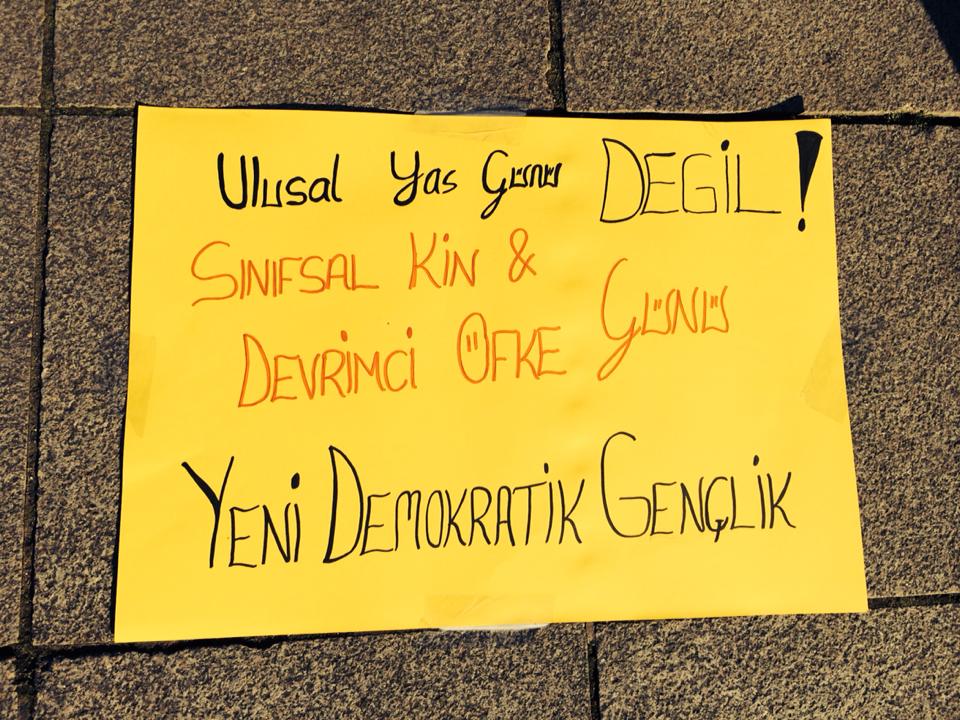 Ulusal Yas Günü DEGİL!
SINIFSAL KİN &
DEVRİMCİ ÖFKE GÜNÜ
YENİ DEMOKRATİK GENÇLİK